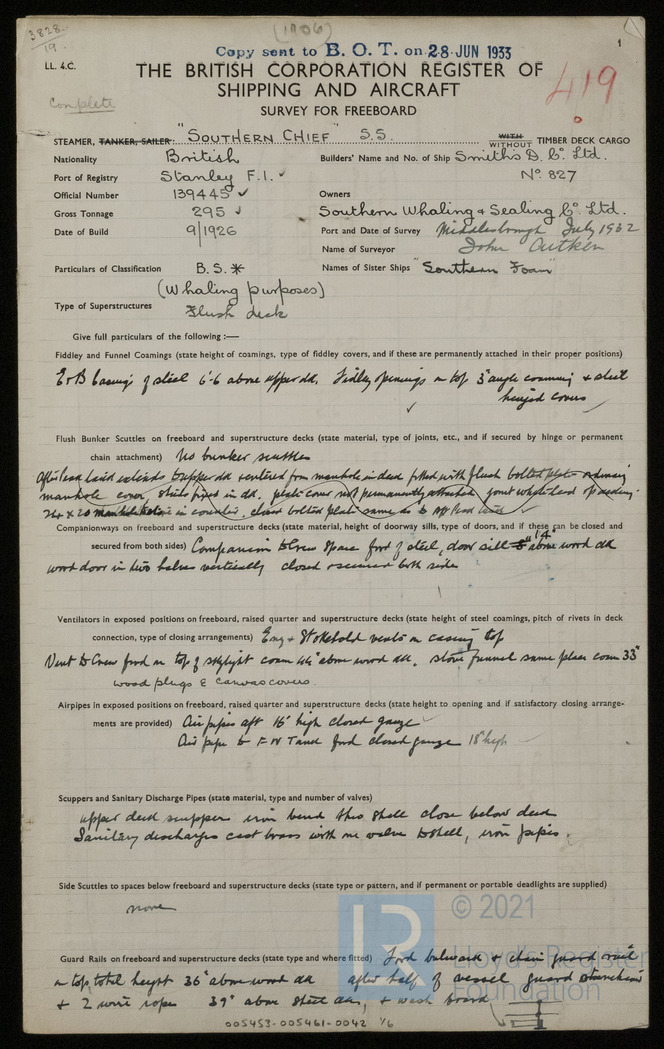 3828
19
(1906)
Copy sent to B. O. T. on 28 JUN 1933
1
LL. 4.C.
THE BRITISH CORPORATION REGISTER OF
SHIPPING AND AIRCRAFT
SURVEY FOR FREEBOARD
419
Complete
STEAMER, TANKER, SAILER "SOUTHERN CHIEF" S.S. WITH WITHOUT TIMBER DECK CARGO
Nationality British Builders' Name and No. of Ship Smith's D. Co. Ltd.
Port of Registry Stanley F.I. ✓ No 827
Official Number 139445 ✓ Owners
Gross Tonnage 295 ✓ Southern Whaling & Sealing Co. Ltd.
Date of Build 9/1926 Port and Date of Survey Middlesbrough July 1932
Name of Surveyor John Aitken
Particulars of Classification B.S.* Names of Sister Ships "Southern Foam"
(Whaling purposes)
Type of Superstructures Flush deck
Give full particulars of the following :—
Fiddley and Funnel Coamings (state height of coamings, type of fiddley covers, and if these are permanently attached in their proper positions)
E & B Casings of steel 6'-6 above upper dk. Fidley openings on top 3" angle coaming & steel
hinged covers
Flush Bunker Scuttles on freeboard and superstructure decks (state material, type of joints, etc., and if secured by hinge or permanent
chain attachment) No bunker scuttles
manhole cover, plate cover not permanently attached
Companionways on freeboard and superstructure decks (state material, height of doorway sills, type of doors, and if these can be closed and
secured from both sides) Companion to Crew space ford of steel, door sill 14" above wood dk
wood door in two halves vertically closed & secured both sides
Ventilators in exposed positions on freeboard, raised quarter and superstructure decks (state height of steel coamings, pitch of rivets in deck
connection, type of closing arrangements) Eng & Stokehold vents on casing top
Vent to Crew ford on top of skylight coam above wood dk. stove funnel same place coam 33"
wood plugs & canvas covers.
Airpipes in exposed positions on freeboard, raised quarter and superstructure decks (state height to opening and if satisfactory closing arrange-
ments are provided) Air pipes aft 16" high closed gauze
Air pipe to F W Tank ford closed gauze 18" high
Scuppers and Sanitary Discharge Pipes (state material, type and number of valves)
upper deck scuppers iron bend thro shell close below deck
Sanitary discharges cast brass with one valve to shell, iron pipes.
Side Scuttles to spaces below freeboard and superstructure decks (state type or pattern, and if permanent or portable deadlights are supplied)
none
Guard Rails on freeboard and superstructure decks (state type and where fitted) Ford bulwark & chain guard rail
on top, total height 36" above wood dk after half of vessel guard stanchions
& 2 wire ropes 39" above steel dk, & wash board
005453-005461-0042 1/6
LR © 2021
Lloyd's Register
Foundation